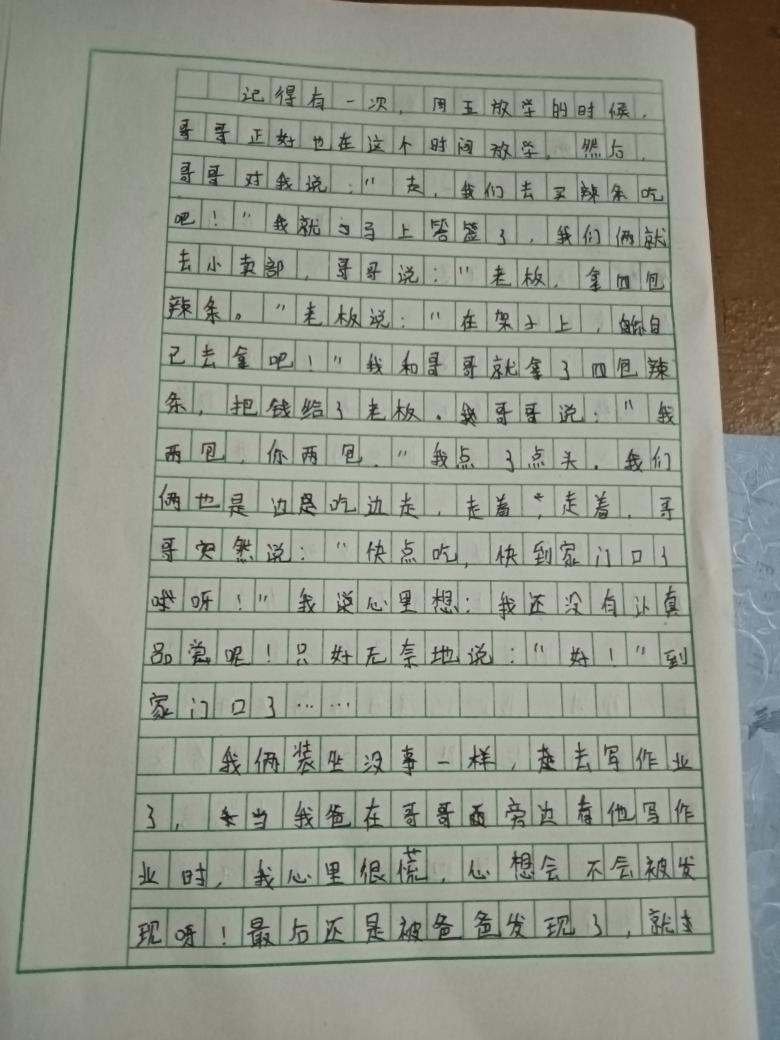 记得有一次，周五放学的时候，
哥哥正好也在这个时间放学。然后，
哥哥对我说：“走，我们去买辣条吃
吧！”我就马上答签了，我们俩就
去小卖部，哥哥说：“老板，拿四包
辣条。”老板说：“在架子上，你自
己去拿吧！”我和哥哥就拿了四包辣
条，把钱给了老板。哥哥说：“我
两包，你两包，”我点了点头。我们
俩也是边吃边走，走着，走着，哥
哥突然说：“快点吃，快到家门口了
呀！”我心里想：我还没有认真
品尝呢！只好无奈地说：“好！”到
家门口了……
我俩装坐没事一样，去写作业
了，当我爸在哥哥旁边看他写作
业时，我心里很慌，心想会不会被发
现呀！最后还是被爸爸发现了，就